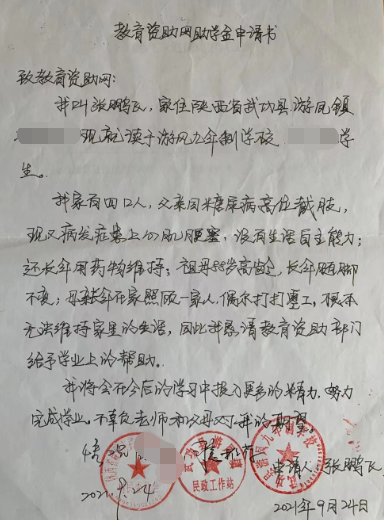 教育资助网助学金申请书
致教育资助网:
我叫张鹏飞,家住陕西省武功县游凤镇
现就读于游凤九年制学校 学
生。
我家有四口人,父亲因糖尿病高位截肢,
现又病发症患上心肌梗塞,没有生活自主能力;
还长年用药物维持;祖母88岁高龄,长年腿脚
不便;母亲长年在家照顾一家人,偶尔打打零工,根本
无法维持家里的生活,因此我恳请教育资助部门
给予学业上的帮助。
我将会在今后的学习中投入更多的精力,努力
完成学业。不辜负老师和父母对我的期望。
情况
申请人 张鹏飞
民政工作站
2021.9.24
2021年9月24日